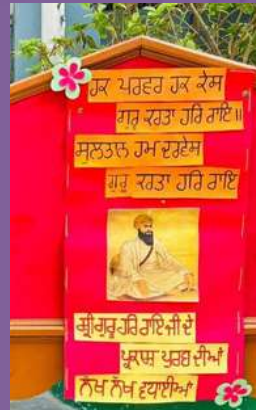 ਹਕ ਪਰਵਰ ਹਕ ਕੇਸ
ਗੁਰੂ ਕਰਤਾ ਹਰਿ ਰਾਇ॥
ਸੁਲਤਾਨ ਹਮ ਦਰਵੇਸ
ਗੁਰੂ ਕਰਤਾ ਹਰਿ ਰਾਇ
ਸ੍ਰੀ ਗੁਰੂ ਹਰਿ ਰਾਇ ਜੀ ਦੇ
ਪ੍ਰਕਾਸ਼ ਪੁਰਬ ਦੀਆਂ
ਲੱਖ ਲੱਖ ਵਧਾਈਆਂ